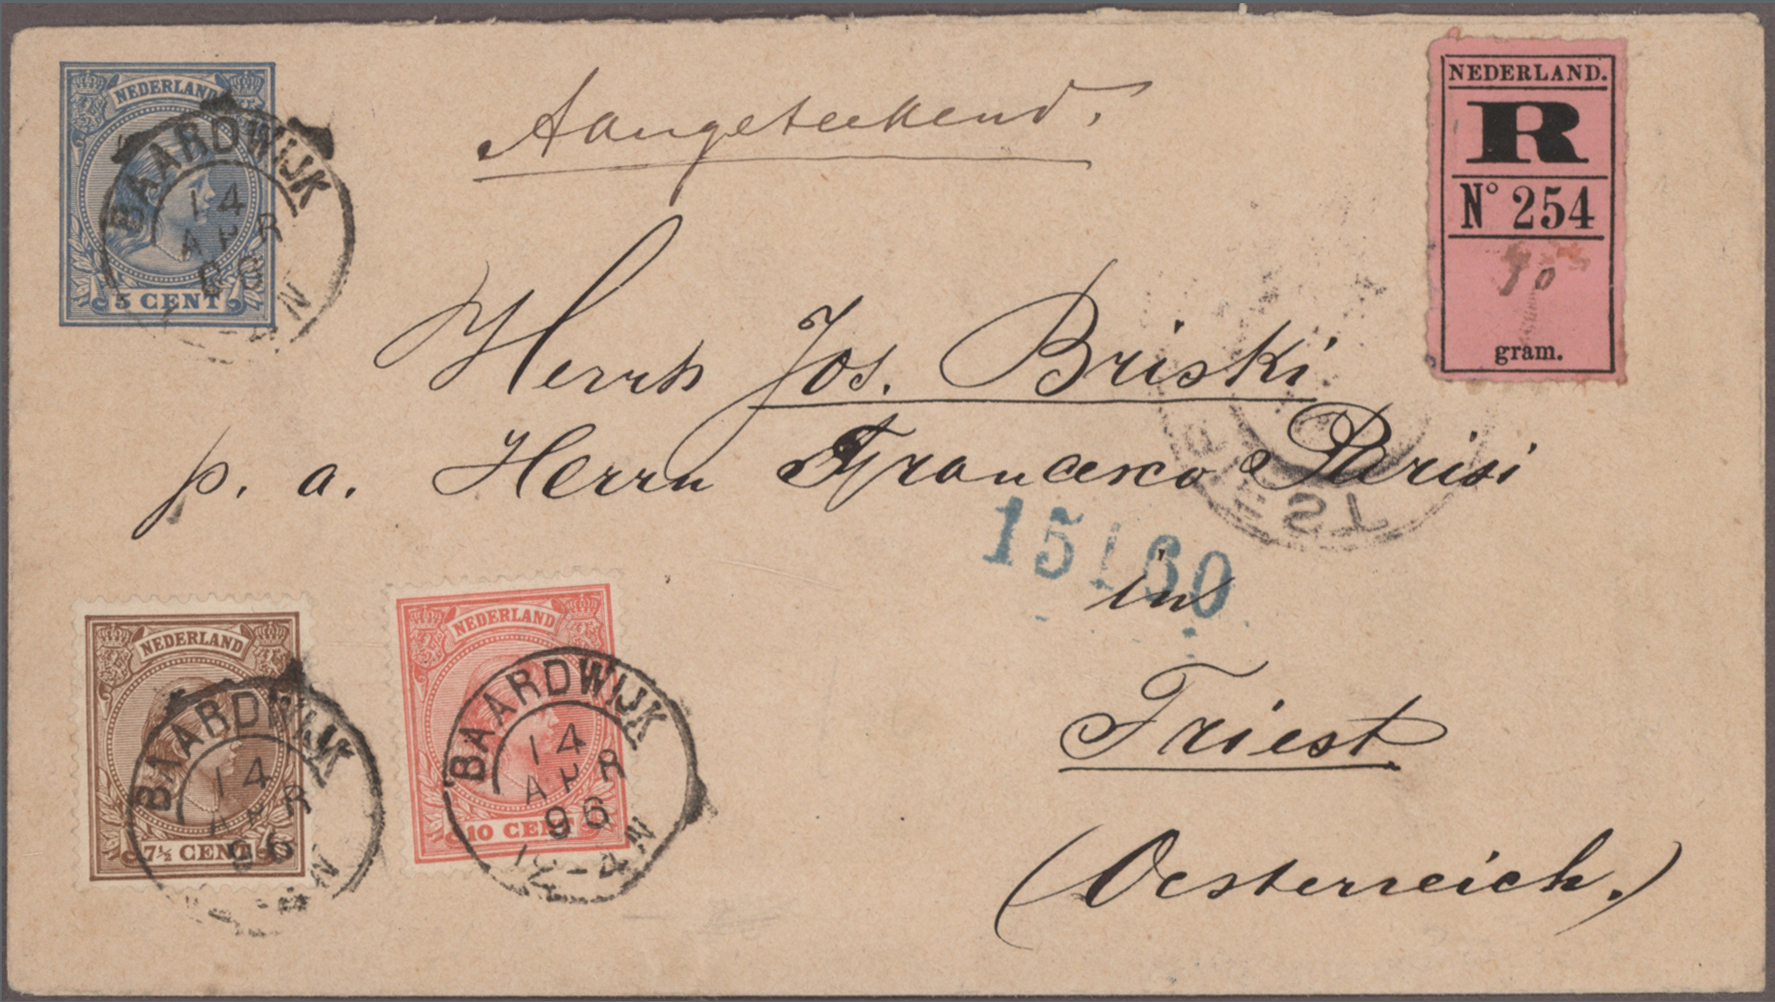 NEDERLAND
5 CENT
BAARDWIJK
14
APR
96
Aangeteekend.
NEDERLAND.
R
N° 254
90
gram.
Herrn Jos. Briski
p. a. Herrn Francesco Parisi
15160
in
Triest
(Oesterreich.)
NEDERLAND
7½ CENT
BAARDWIJK
14
APR
96
NEDERLAND
10 CENT
BAARDWIJK
14
APR
96
12-4N